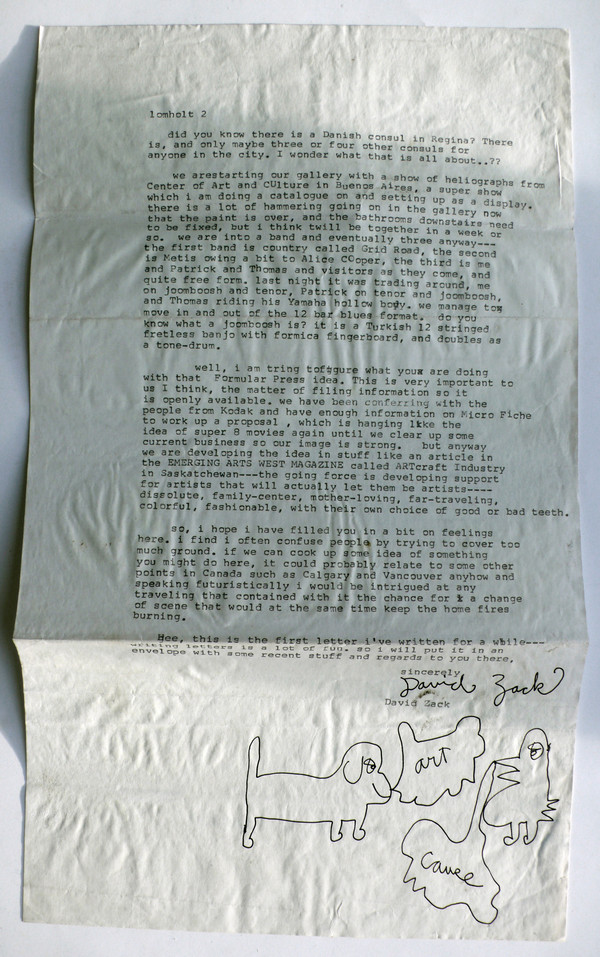 lomholt 2
did you know there is a Danish consul in Regina? There
is, and only maybe three or four other consuls for
anyone in the city. I wonder what that is all about..??
we arestarting our gallery with a show of heliographs from
Center of Art and CUlture in Buenos Aires, a super show
which i am doing a catalogue on and setting up as a display.
there is a lot of hammering going on in the gallery now
that the paint is over, and the bathrooms downstairs need
to be fixed, but i think twill be together in a week or
so. we are into a band and eventually three anyway---
the first band is country called Grid Road, the second
is Metis owing a bit to Alice COoper, the third is me
and Patrick and Thomas and visitors as they come, and
quite free form. last night it was trading around, me
on joomboosh and tenor, Patrick on tenor and joomboosh,
and Thomas riding his Yamaha hollow body. we manage to
move in and out of the 12 bar blues format. do you
know what a joomboosh is? it is a Turkish 12 stringed
fretless banjo with formica fingerboard, and doubles as
a tone-drum.
well, i am tring tofigure what you are doing
with that Formular Press idea. This is very important to
us I think, the matter of filing information so it
is openly available. we have been conferring with the
people from Kodak and have enough information on Micro Fiche
to work up a proposal , which is hanging like the
idea of super 8 movies again until we clear up some
current business so our image is strong. but anyway
we are developing the idea in stuff like an article in
the EMERGING ARTS WEST MAGAZINE called ARTcraft Industry
in Saskatchewan---the going force is developing support
for artists that will actually let them be artists----
dissolute, family-center, mother-loving, far-traveling,
colorful, fashionable, with their own choice of good or bad teeth.
so, i hope i have filled you in a bit on feelings
here. i find i often confuse people by trying to cover too
much ground. if we can cook up some idea of something
you might do here, it could probably relate to some other
points in Canada such as Calgary and Vancouver anyhow and
speaking futuristically i would be intrigued at any
traveling that contained with it the chance for a change
of scene that would at the same time keep the home fires
burning.
Hee, this is the first letter i've written for a while---
writing letters is a lot of fun. so i will put it in an
envelope with some recent stuff and regards to you there,
sincerely
David Zack
David Zack
art